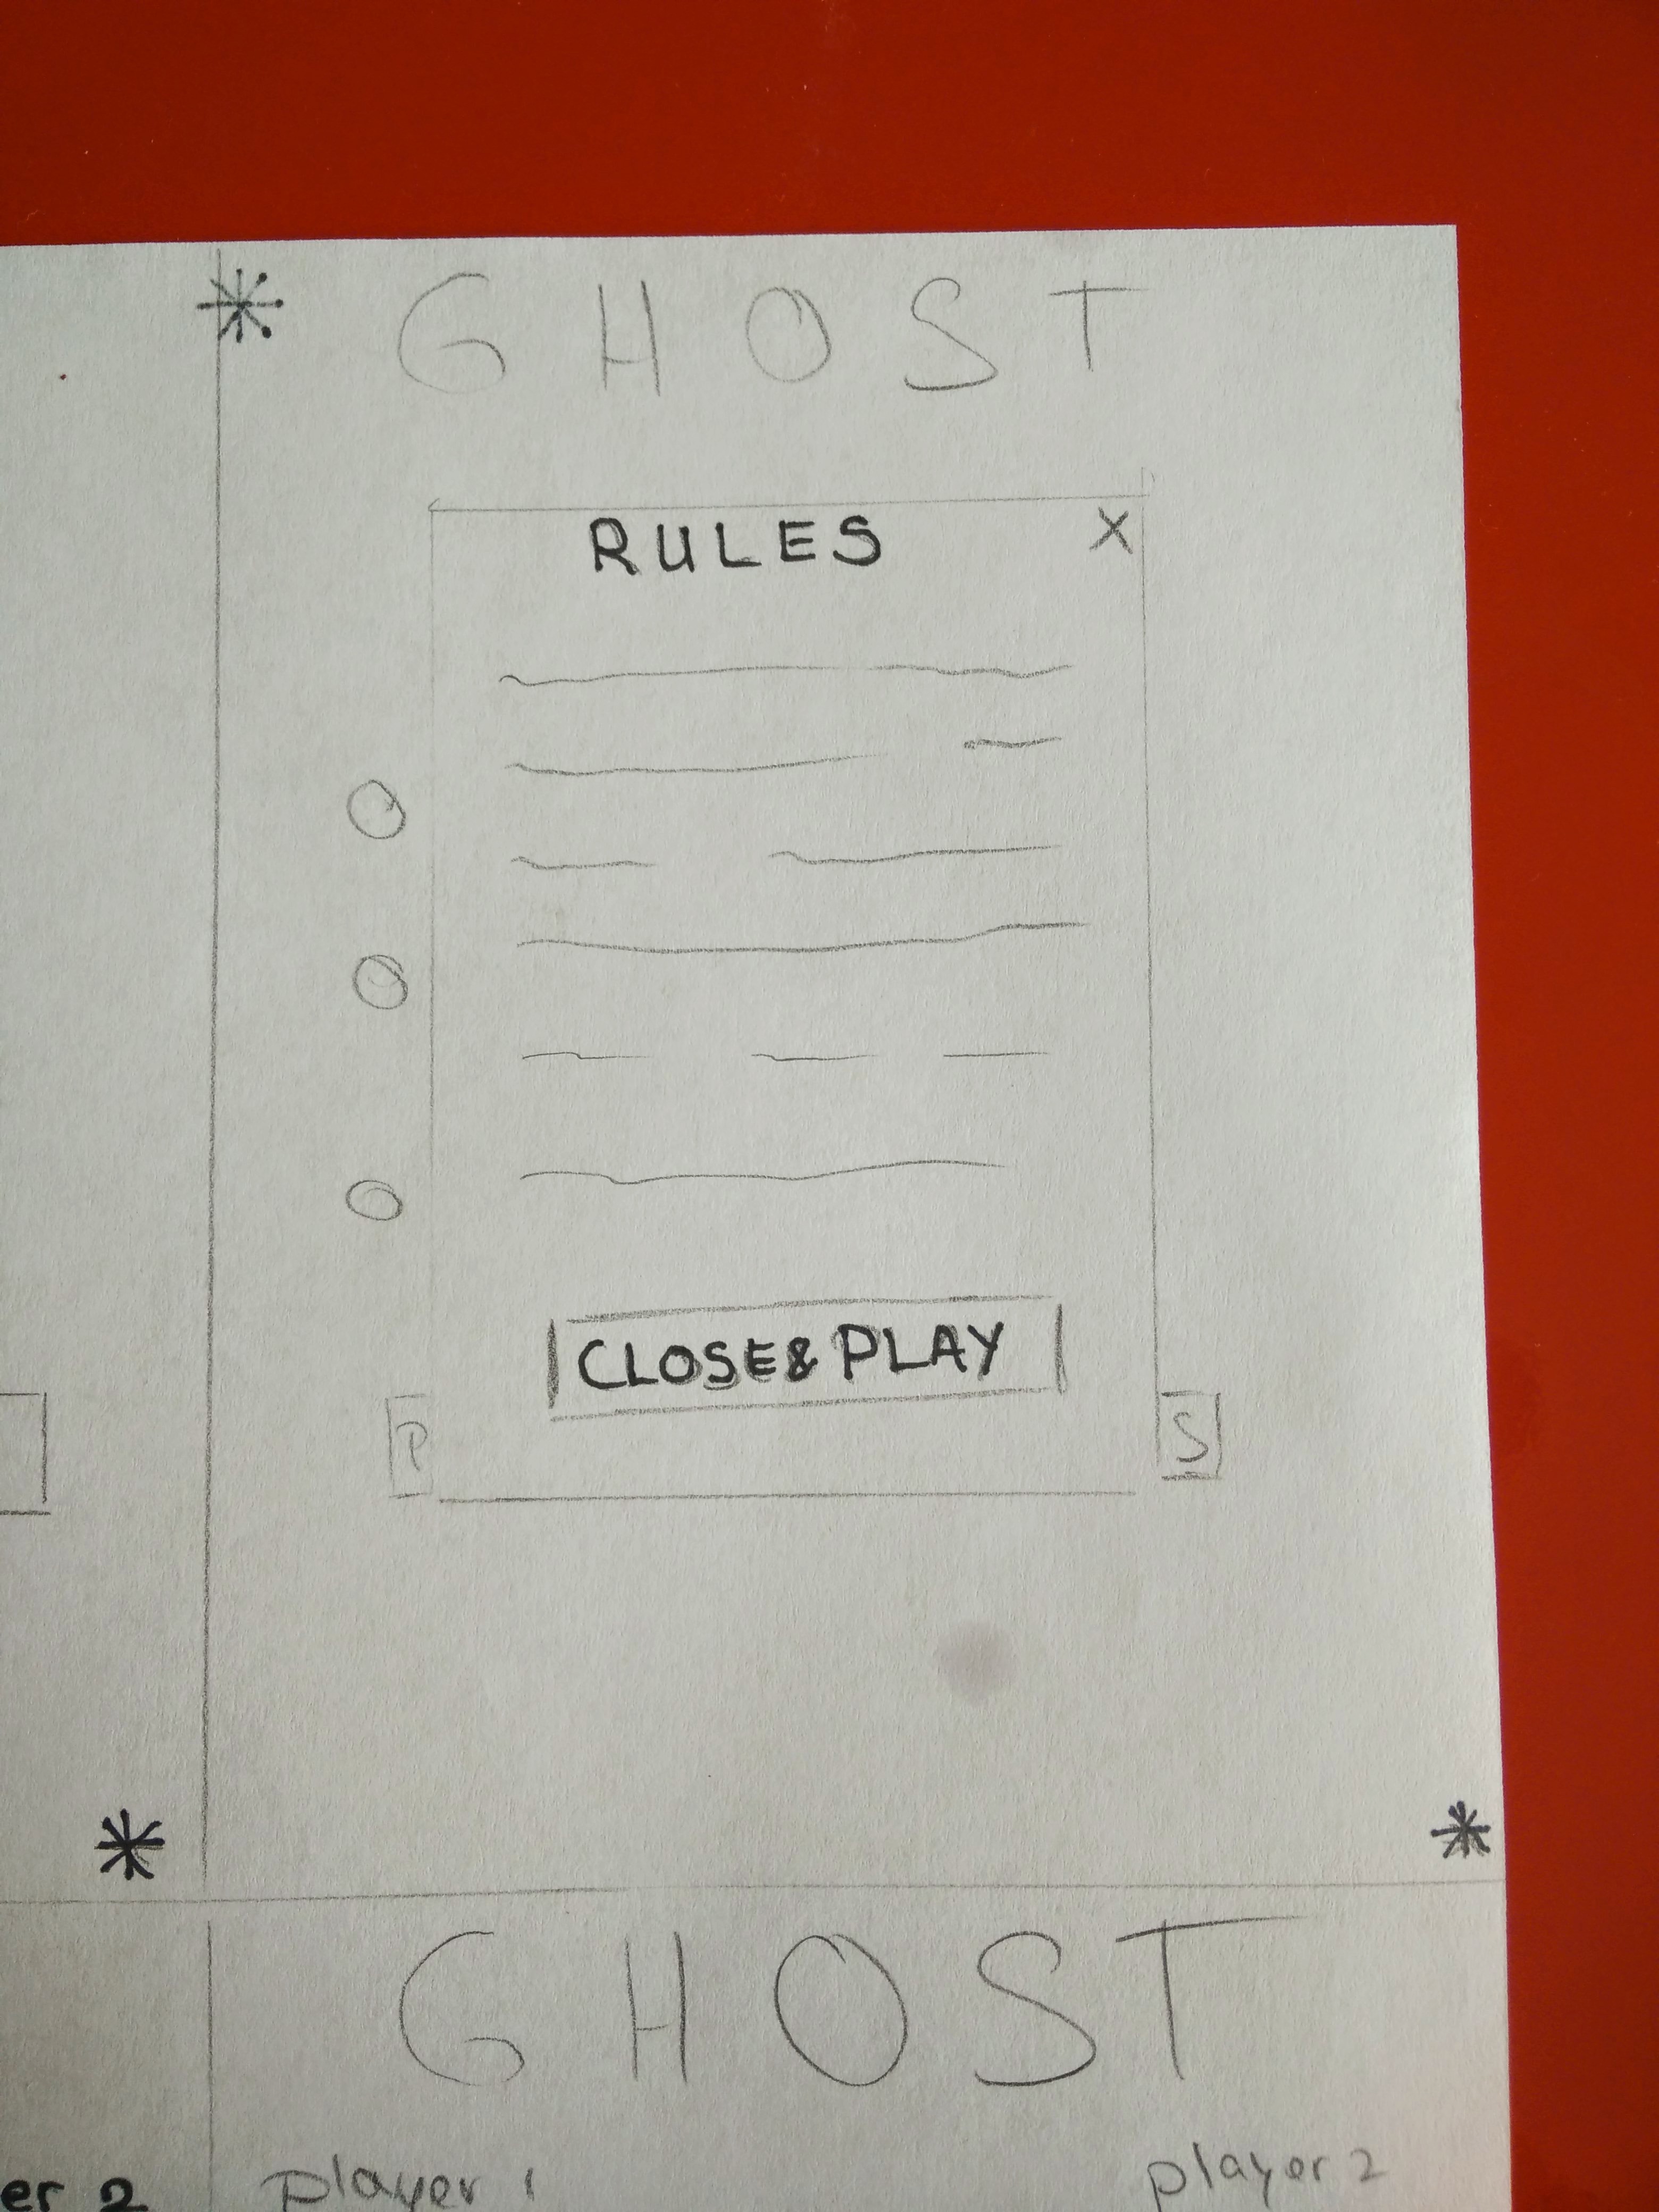 G H O S T
RULES X
CLOSE & PLAY
P S
GHOST
er 2 player 1 player 2